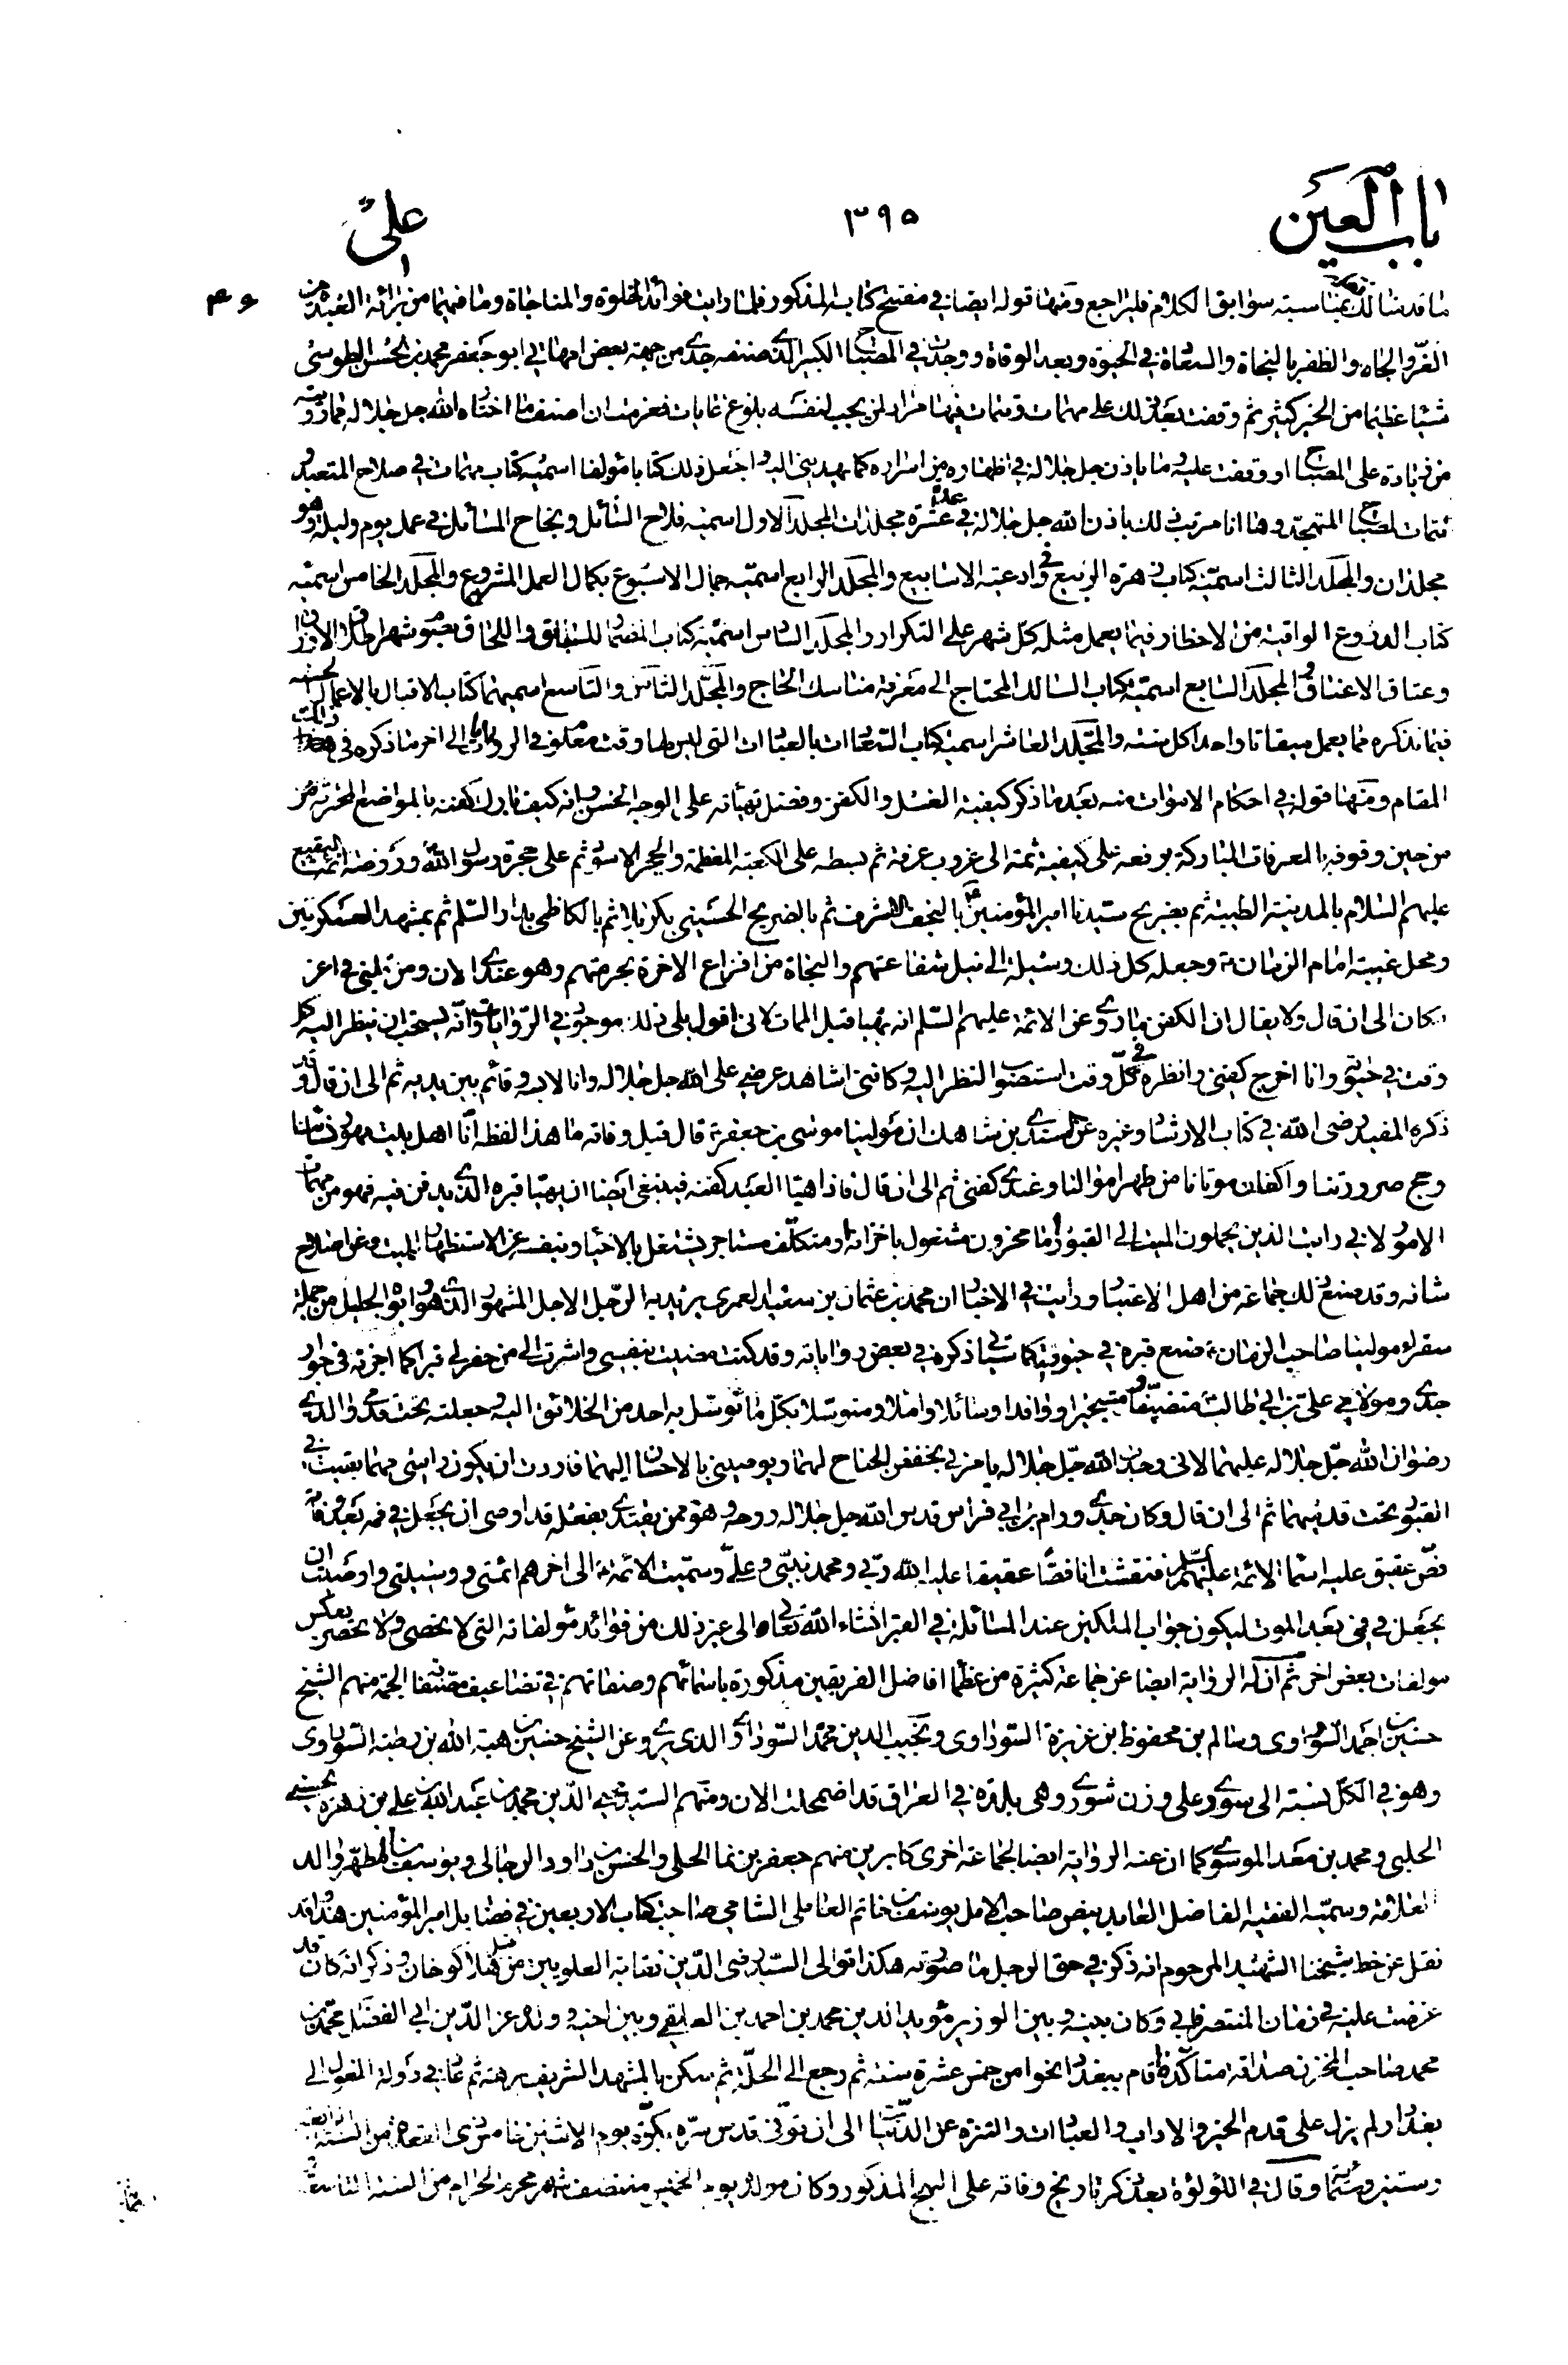 باب العين
۳۹۵
علي
۴۶
ما قدمنا لك بمناسبة سوابق الكلام فليراجع ومنها قوله ايضا في مفتتح كتابه المذكور فلما رايت فوائد الخلوة والمناجاة وما فيهما من
العز والجاه والظفر بالنجاة والسعادة في الحيوة وبعد الوفاة ووجدت في المصباح الكبير الذي صنفه جدي من جهة بعض امهاتي ابو جعفر محمد بن الحسن الطوسي
شيئا عظيما من الخير كثير ثم وقفت بعد ذلك على مهمات وتتمات فيها مراد لمن يحب لنفسه بلوغ غايات فعزمت ان اصنف ما اختاره الله جل جلاله مما رويته
من زيادة على المصباح او وقفت عليه وما ياذن جل جلاله في اظهاره من اسراره كما يهديني اليه واجعل ذلك كتابا مؤلفا اسميه كتاب مهمات في صلاح المتعبد و
تتمات لمصباح المتهجد وها انا مرتب ذلك باذن الله جل جلاله في عدة عشرة مجلدات المجلد الاول اسميه فلاح السائل ونجاح المسائل في عمل يوم وليلة وهو
مجلدان والمجلد الثالث اسميته كتاب زهرة الربيع في ادعية الاسابيع والمجلد الرابع اسميه جمال الاسبوع بكمال العمل المشروع والمجلد الخامس اسميه
كتاب الدروع الواقية من الاخطار فيما يعمل مثله كل شهر على التكرار والمجلد السادس اسميه كتاب المضمار للسباق واللحاق بصوم شهر اطلاق الارزاق
وعتاق الاعناق والمجلد السابع اسميه كتاب السالك المحتاج الى معرفة مناسك الحاج والمجلد الثامن والتاسع اسميهما كتاب الاقبال بالاعمال الحسنة
فيما نذكره مما يعمل ميقاتا واحدا كل سنة والمجلد العاشر اسميه كتاب السعادات بالعبادات التي ليس لها وقت معلوم في الروايات الى اخر ما ذكره في هذا
المقام ومنها قوله في احكام الاموات منه بعد ما ذكر كيفية الغسل والكفن وفضل تهيأته على الوجه الحسن انه كيف تبارك كفنه بالمواضع المحترمة من
من حين وقوفه بالمعرفات المتباركة يرفعه على كيفية ثمة الى غروب عرفة ثم بسطه على الكعبة المعظمة والحجر الاسود ثم على حجرة رسول الله وروضة ائمة البقيع
عليهم السلام بالمدينة الطيبة ثم بضريح سيدنا امير المؤمنين بالنجف الاشرف ثم بالضريح الحسيني بكربلا ثم بالكاظمي بدار السلم ثم بمشهد العسكريين
ومحل غيبة امام الزمان وجعله كل ذلك وسيلة الى نيل شفاعتهم والنجاة من افزاع الاخرة بحرمتهم وهو عندي الان ومرتبتي في اعز
مكان الى ان قال ولا يقال ان الكفن ما روي عن الائمة عليهم السلم انه يهيا قبل الممات لاني اقول بلى ذلك موجود في الروايات وانه يستحب ان ينظر اليه كل
وقت في حيوتي وانا اخرج كفني وانظره في كل وقت استصوب النظر اليه وكانني اشاهد عرضي على الله جل جلاله وانا لابسه وقائم بين يديه ثم الى ان قال
ذكره المفيد رضى الله في كتاب الارشاد وغيره عن السندي بن شاهك ان مولينا موسى بن جعفر قال قبل وفاته ما هذا لفظه انا اهل بيت مهور نسائنا
وحج صرورتنا واكفان موتانا من طهر اموالنا وعندي كفني ثم الى ان قال فاذا هيا العبد كفنه فينبغي ايضا ان يهيا قبره الذي يدفن فيه فهو من مهمات
الامور لاني رايت الذين يحملون الميت الى القبور اما محزون مشغول باحزانه او متكلف مستاجر يشتغل بالاحياء وبنفسه عن الاستظهار للميت وعن اصلاح
شانه وقد صنع ذلك جماعة من اهل الاعتبار ورايت في الاخبار ان محمد بن عثمان بن سعيد العمري يريد به الرجل الاجل المشهور الذي هو وابوه الجليل من جملة
سفراء مولينا صاحب الزمان صنع قبره في حيوته كما سياتي ذكره في بعض رواياته وقد كنت مضيت بنفسي واشرت الى من حفر لي قبرا كما اخترته في جوار
جدي ومولاي علي بن ابي طالب متضيفا ومستجيرا ووافدا وسائلا واملا ومتوسلا بكل ما توسل به احد من الخلائق اليه وجعلته تحت قدمي والدي
رضوان الله جل جلاله عليهما لاني وجدت الله جل جلاله يامرني بخفض الجناح لهما ويوصيني بالاحسان اليهما فاردت ان يكون راسي مهما بقيت في
القبور تحت قدميهما ثم الى ان قال وكان جدي ورام بن ابي فراس قدس الله جل جلاله روحه وهو ممن يقتدى بفعله قد اوصى ان يجعل في فمه بعد وفاته
فص عقيق عليه اسماء الائمة عليهم السلم فنقشت انا فصا عقيقا عليه الله ربي ومحمد نبيي وعلي وسميت الائمة الى اخرهم ائمتي ووسيلتي واوصيت ان
يجعل في فمي بعد الموت ليكون جواب الملكين عند المسائلة في القبر انشاء الله تعالى الى غير ذلك من فوائد مؤلفاته التي لا تحصى ولا تحصر بعكس
مولفات بعض اخر ثم ان له الرواية ايضا عن جماعة كثيرة من عظماء افاضل الفريقين مذكورة باسمائهم وصفاتهم في تضاعيف مصنفاته الجمة منهم الشيخ
حسين بن احمد السوراوي وسالم بن محفوظ بن عزيزة السوراوي ونجيب الدين محمد السوراوي الذي يروي عن الشيخ حسين بن هبة الله بن رطبة السوراوي
وهو في الكل نسبة الى سوري على وزن شورى وهي بلدة في العراق قد اضمحلت الان ومنهم السيد محيي الدين محمد بن عبد الله بن علي بن زهرة الحسيني
الحلبي ومحمد بن معد الموسوي كما ان عنه الرواية ايضا لجماعة اخرى كابرين منهم جعفر بن نما الحلي والحسن بن داود الرجالي ويوسف بن المطهر والد
العلامة وسميه الفقيه الفاضل العابد بنص صاحب الامل يوسف بن حاتم العاملي الشامي صاحب كتاب الاربعين في فضايل امير المؤمنين هذا وقد
نقل عن خط شيخنا الشهيد المرحوم انه ذكر في حق الرجل ما صورته هكذا تولى السيد رضى الدين نقابة العلويين من قبل هلاكو خان وذكر انه كان قد
عرضت عليه في زمان المنتصر فابى وكان بينه وبين الوزير مؤيد الدين محمد بن احمد بن العلقمي وبين اخيه وولده عز الدين ابي الفضل محمد بن
محمد صاحب المخزن صداقة متاكدة اقام ببغداد نحوا من خمس عشرة سنة ثم رجع الى الحلة ثم سكن بالمشهد الشريف برهة ثم عاد في دولة المغول الى
بغداد ولم يزل على قدم الخير والاداب والعبادات والتنزه عن الدنيات الى ان توفى قدس سره بكرة يوم الاثنين خامس ذى القعدة من السنة الرابعة
وستين وستمائة وقال في اللؤلؤة بعد ذكر تاريخ وفاته على النهج المذكور وكان مولده يوم الخميس منتصف شهر محرم الحرام من السنة التاسعة